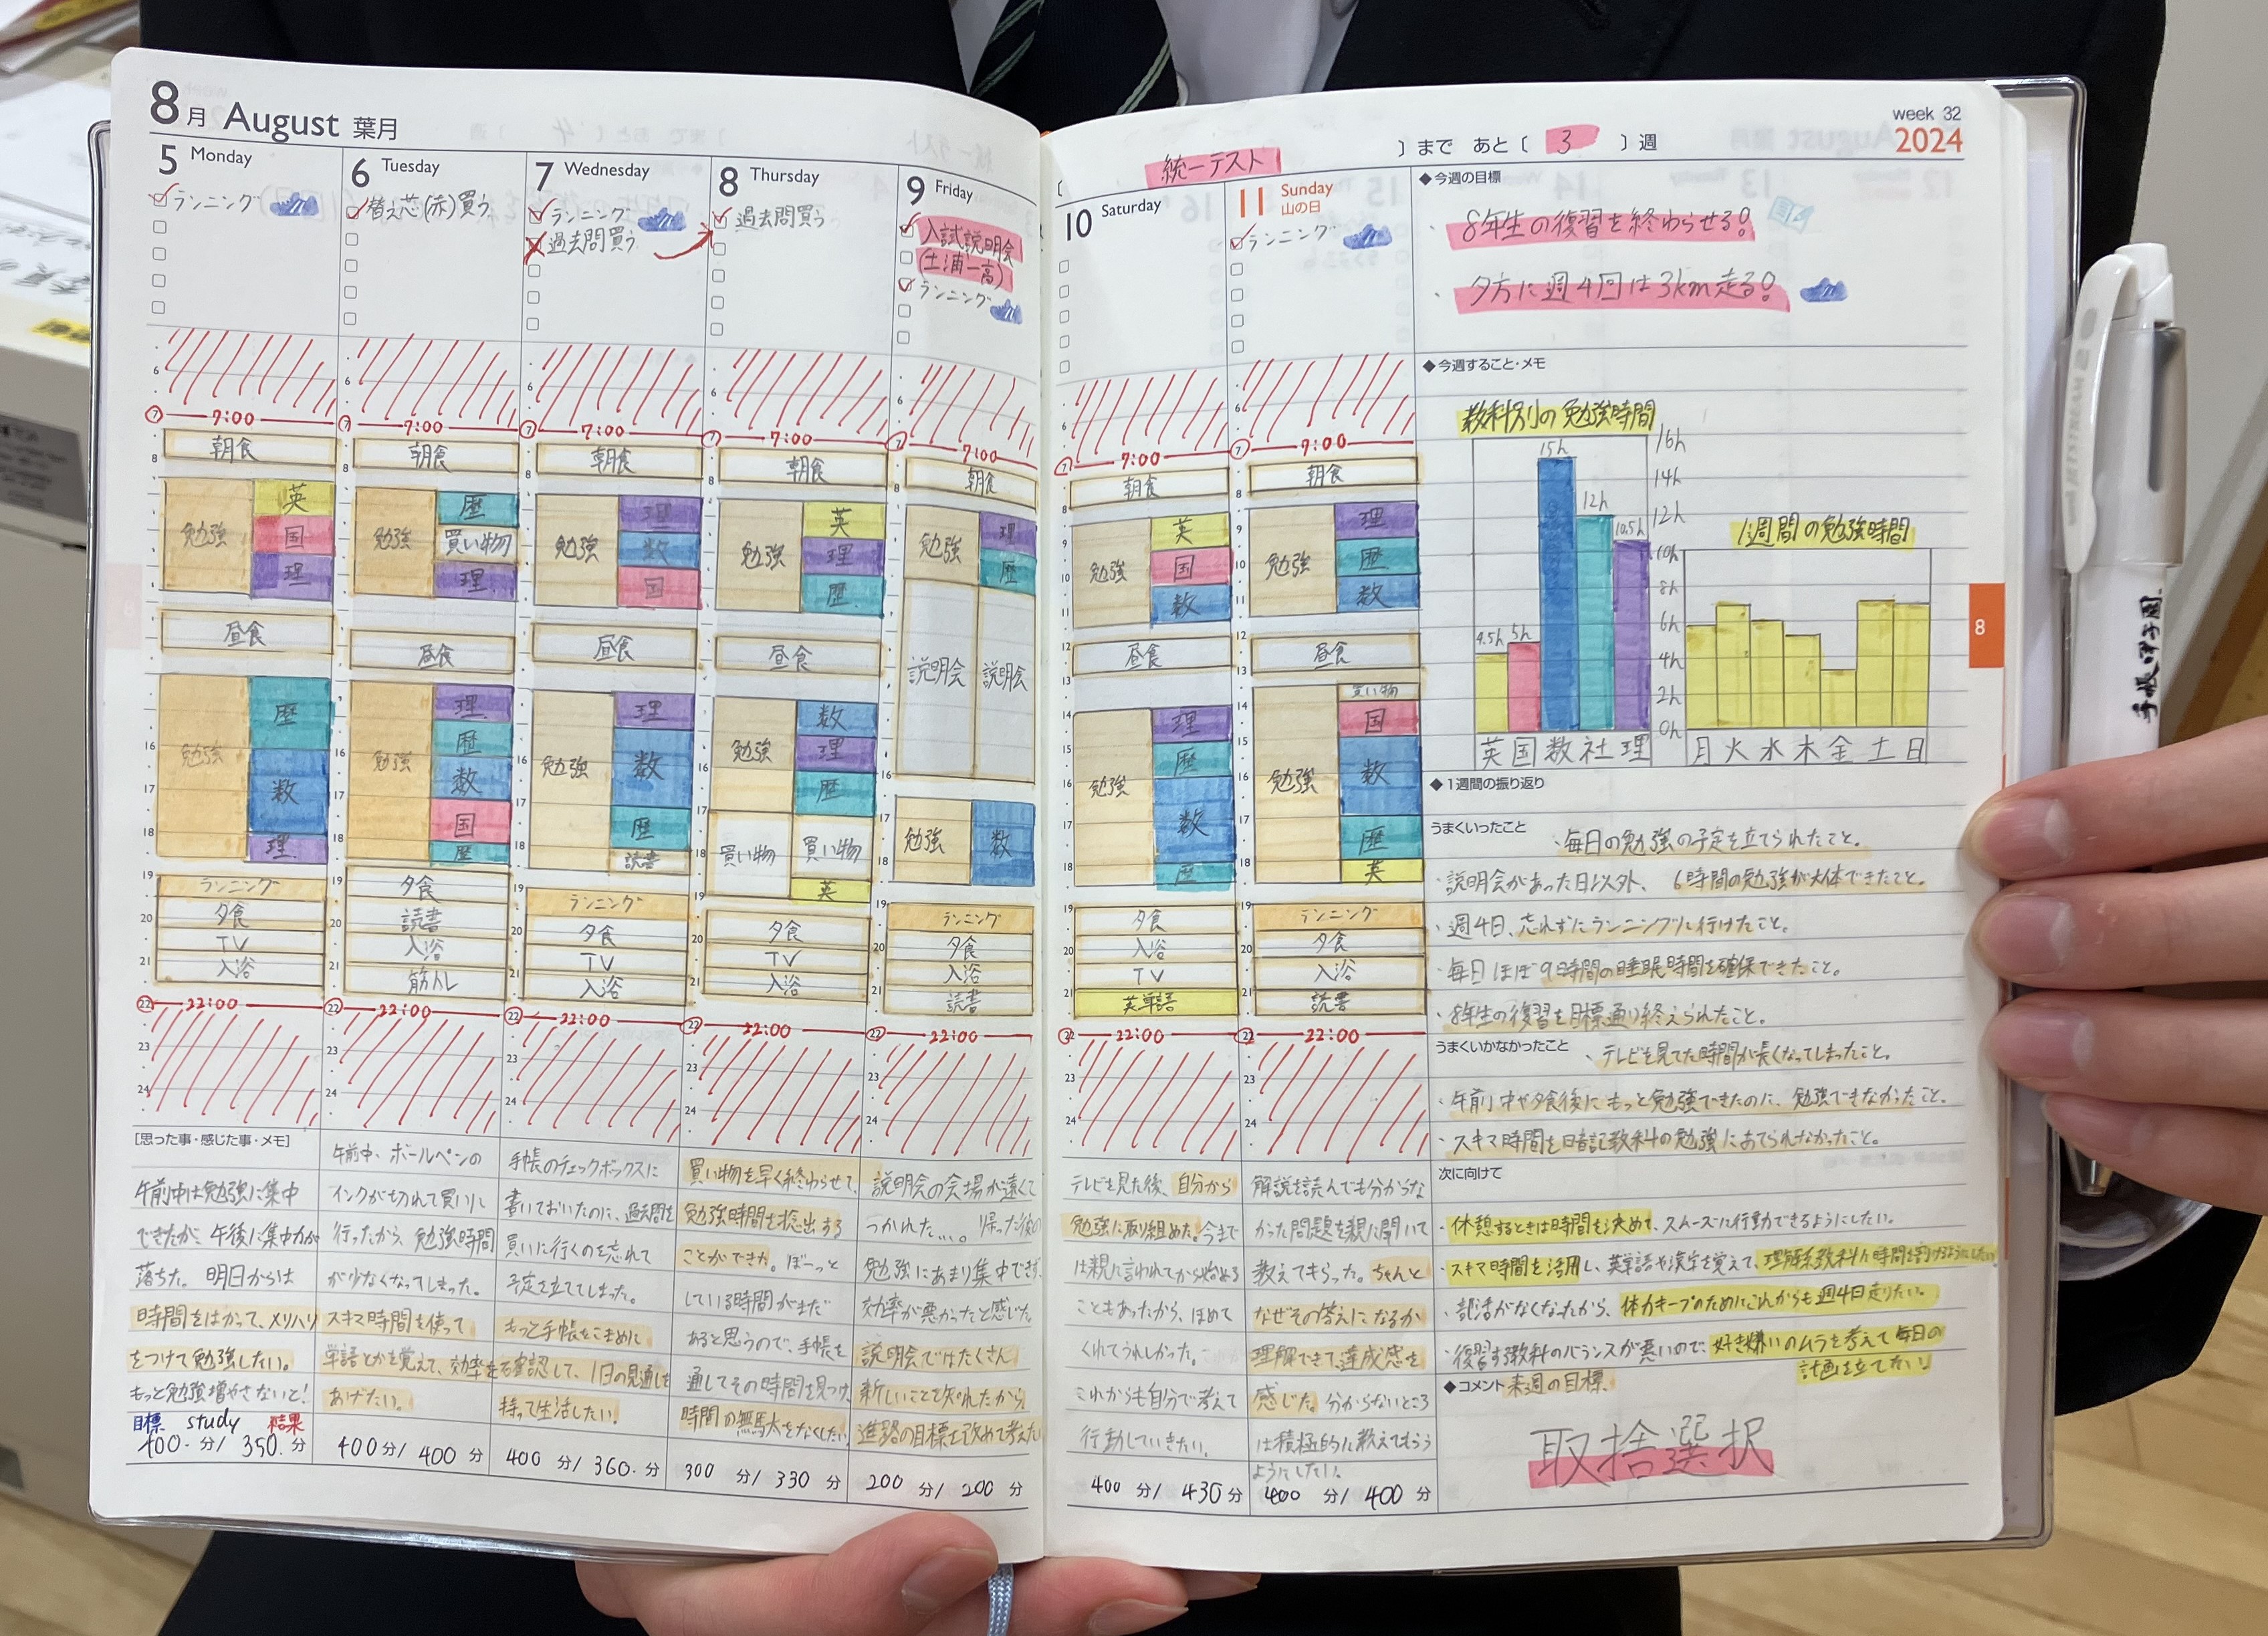 8月 August 葉月
5 Monday
ランニング
6 Tuesday
替え芯(赤)買う
7 Wednesday
ランニング
過去問買う
8 Thursday
過去問買う
9 Friday
入試説明会
(土浦一高)
ランニング
6
⑦ 7:00
朝食
8
勉強
英
国
理
昼食
勉強
歴
数
理
16
17
18
19
ランニング
20
夕食
TV
21
入浴
22 22:00
23
24
6
⑦ 7:00
朝食
8
勉強
歴
買い物
理
昼食
勉強
理
歴
数
国
歴
夕食
読書
入浴
筋トレ
22:00
6
⑦ 7:00
朝食
勉強
理
数
国
昼食
勉強
理
数
歴
読書
ランニング
夕食
TV
入浴
22:00
6
⑦ 7:00
朝食
勉強
英
理
歴
昼食
勉強
数
理
歴
買い物
買い物
英
夕食
TV
入浴
22:00
6
⑦ 7:00
朝食
勉強
理
歴
説明会
説明会
勉強
数
ランニング
夕食
入浴
読書
22:00
[思った事・感じた事・メモ]
午前中は勉強に集中
できたが、午後に集中力が
落ちた。明日からは
時間をはかって、メリハリ
をつけて勉強したい。
もっと勉強増やさないと!
目標 study 結果
400分/350分
午前中、ボールペンの
インクが切れて買いに
行ったから、勉強時間
が少なくなってしまった。
スキマ時間を使って
単語とかを覚えて、効率を
あげたい。
400分/400分
手帳のチェックボックスに
書いておいたのに、過去問を
買いに行くのを忘れて
予定を立ててしまった。
もっと手帳をこまめに
も確認して、1日の見通しを
持って生活したい。
400分/360分
買い物を早く終わらせて、
勉強時間を捻出する
ことができた。ぼーっと
している時間がまだ
あると思うので、手帳を
通してその時間を見つけ、
時間の無駄をなくしたい。
300分/330分
説明会の会場が遠くて
つかれた...。帰った後の
勉強にあまり集中できず、
効率が悪かったと感じた。
説明会ではたくさん
新しいことを知れたから
進路の目標を改めて考えた
200分/200分
[統一テスト]まで あと[3]週
week 32
2024
10 Saturday
11 Sunday
山の日
ランニング
6
⑦ 7:00
朝食
勉強
英
国
数
昼食
勉強
理
歴
数
歴
夕食
入浴
TV
英単語
22:00
6
⑦ 7:00
朝食
勉強
理
歴
数
昼食
買い物
勉強
国
数
歴
英
ランニング
夕食
入浴
読書
22:00
テレビを見た後、自分から
勉強に取り組めた。今まで
は親に言われてから始める
こともあったから、ほめて
くれてうれしかった。
これからも自分で考えて
行動していきたい。
400分/430分
解説を読んでも分からな
かった問題を親に聞いて
教えてもらった。ちゃんと
なぜその答えになるか
理解できて達成感を
感じた。分からないところ
は積極的に教えてもらう
ようにしたい。
400分/400分
◆今週の目標
・8年生の復習を終わらせる!
・夕方に週4回は3km走る!
◆今週すること・メモ
教科別の勉強時間
4.5h 5h 15h 12h 10.5h
英国数社理
16h
14h
12h
10h
8h
6h
4h
2h
0h
1週間の勉強時間
月火水木金土日
◆1週間の振り返り
うまくいったこと
・毎日の勉強の予定を立てられたこと。
・説明会があった日以外、6時間の勉強が大体できたこと。
・週4日、忘れずにランニングに行けたこと。
・毎日ほぼ9時間の睡眠時間を確保できたこと。
・8年生の復習を目標通り終えられたこと。
うまくいかなかったこと
・テレビを見てた時間が長くなってしまったこと。
・午前中や夕食後にもっと勉強できたのに、勉強できなかったこと。
・スキマ時間を暗記教科の勉強にあてられなかったこと。
次に向けて
・休憩するときは時間を決めて、スムーズに行動できるようにしたい。
・スキマ時間を活用し、英単語や漢字を覚えて、理解系教科に時間を割けるようにしたい。
・部活がなくなったから、体力キープのためにこれからも週4日走りたい。
・復習する教科のバランスが悪いので、好き嫌いのムラを考えて毎日の
計画を立てたい!
◆コメント 来週の目標
取捨選択
8
手帳甲子園